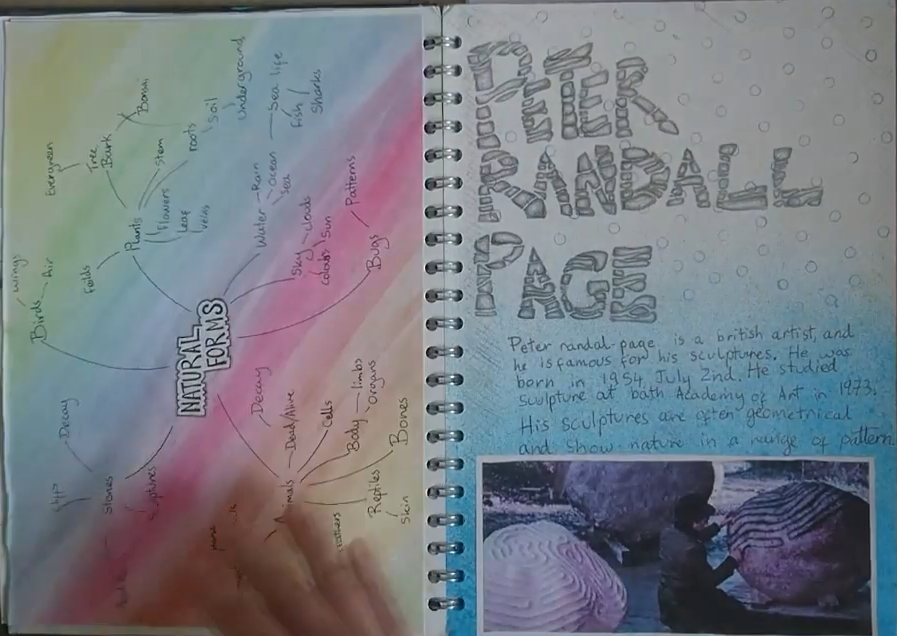 NATURAL
FORMS
Birds
Wings
Air
Fields
Plants
Flowers
Leaf
veins
Stem
roots
Soil
Underground
Tree
Bark
Evergreen
Bonsai
Water
Rain
Ocean
Sea
Sea life
Fish
Sharks
Sky
clouds
Sun
colours
Bugs
Patterns
Animals
Decay
Dead/Alive
Cells
Body
limbs
organs
Bones
Reptiles
Skin
Stones
Decay
PETER
RANDALL
PAGE
Peter randal page is a british artist, and
he is famous for his sculptures. He was
born in 1954, July 2nd. He studied
sculpture at bath Academy of Art in 1973.
His sculptures are often geometrical
and show nature in a range of pattern